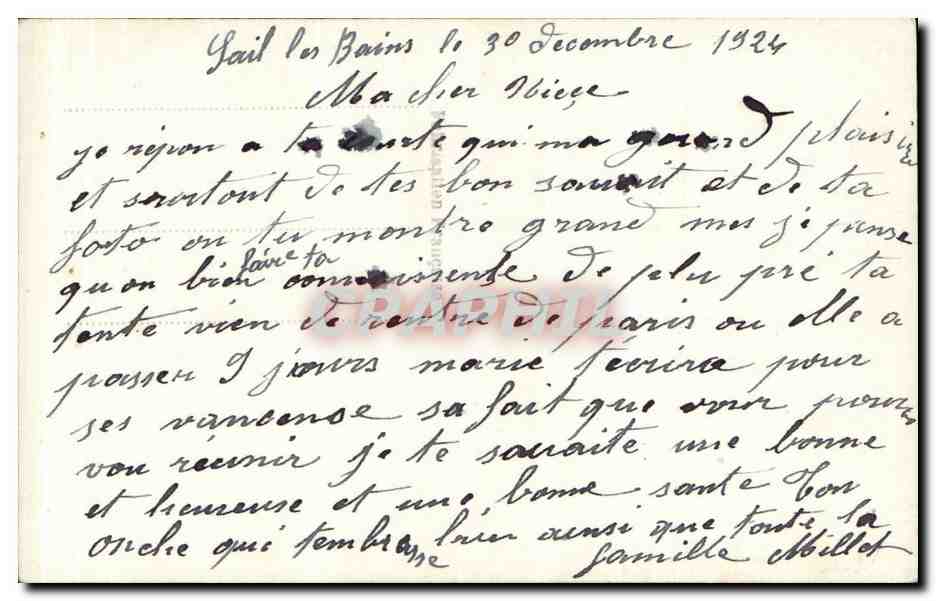 Sail les Bains le 30 decembre 1924
Ma cher Niece
je répon a ta carte qui ma grand plaisire
et surtout de tes bon souait et de ta
foto ou tu montre grand mes je pense
qu on bien faire ta connaissense de plu pré ta
tente vien de rentre de paris ou elle a
passer 9 jours marie técrira pour
ses vancense sa fait que vour pourez
vou réunir je te souaite une bonne
et heureuse et une bonne sante Ton
onche qui tembrasse bien ainsi que toute la
famille Millet
CPAPHIL